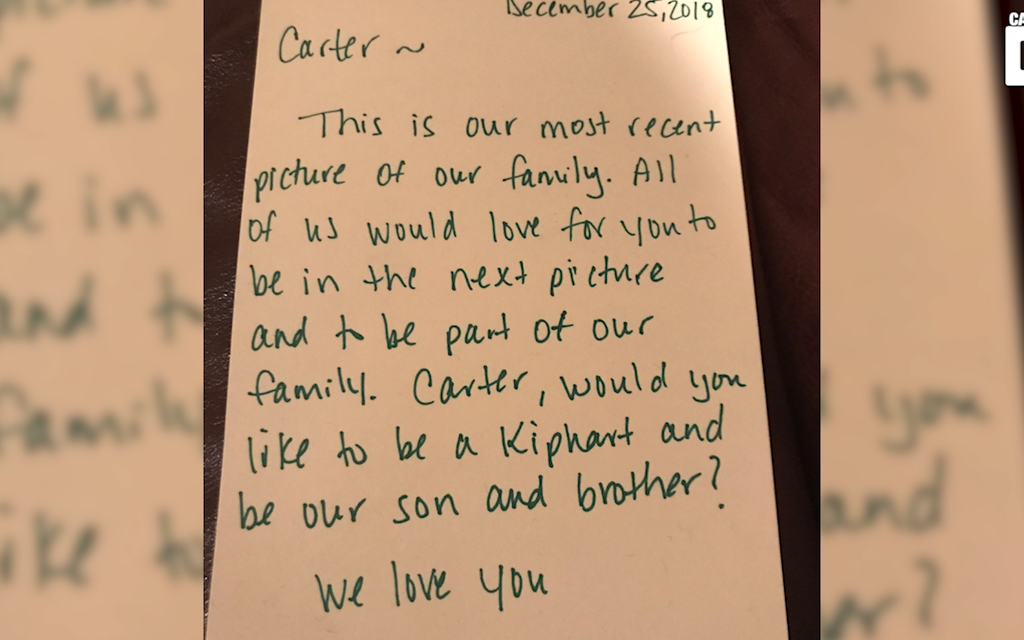 December 25, 2018
Carter ~
This is our most recent
picture of our family. All
of us would love for you to
be in the next picture
and to be part of our
family. Carter, would you
like to be a Kiphart and
be our son and brother?
We love you
CA